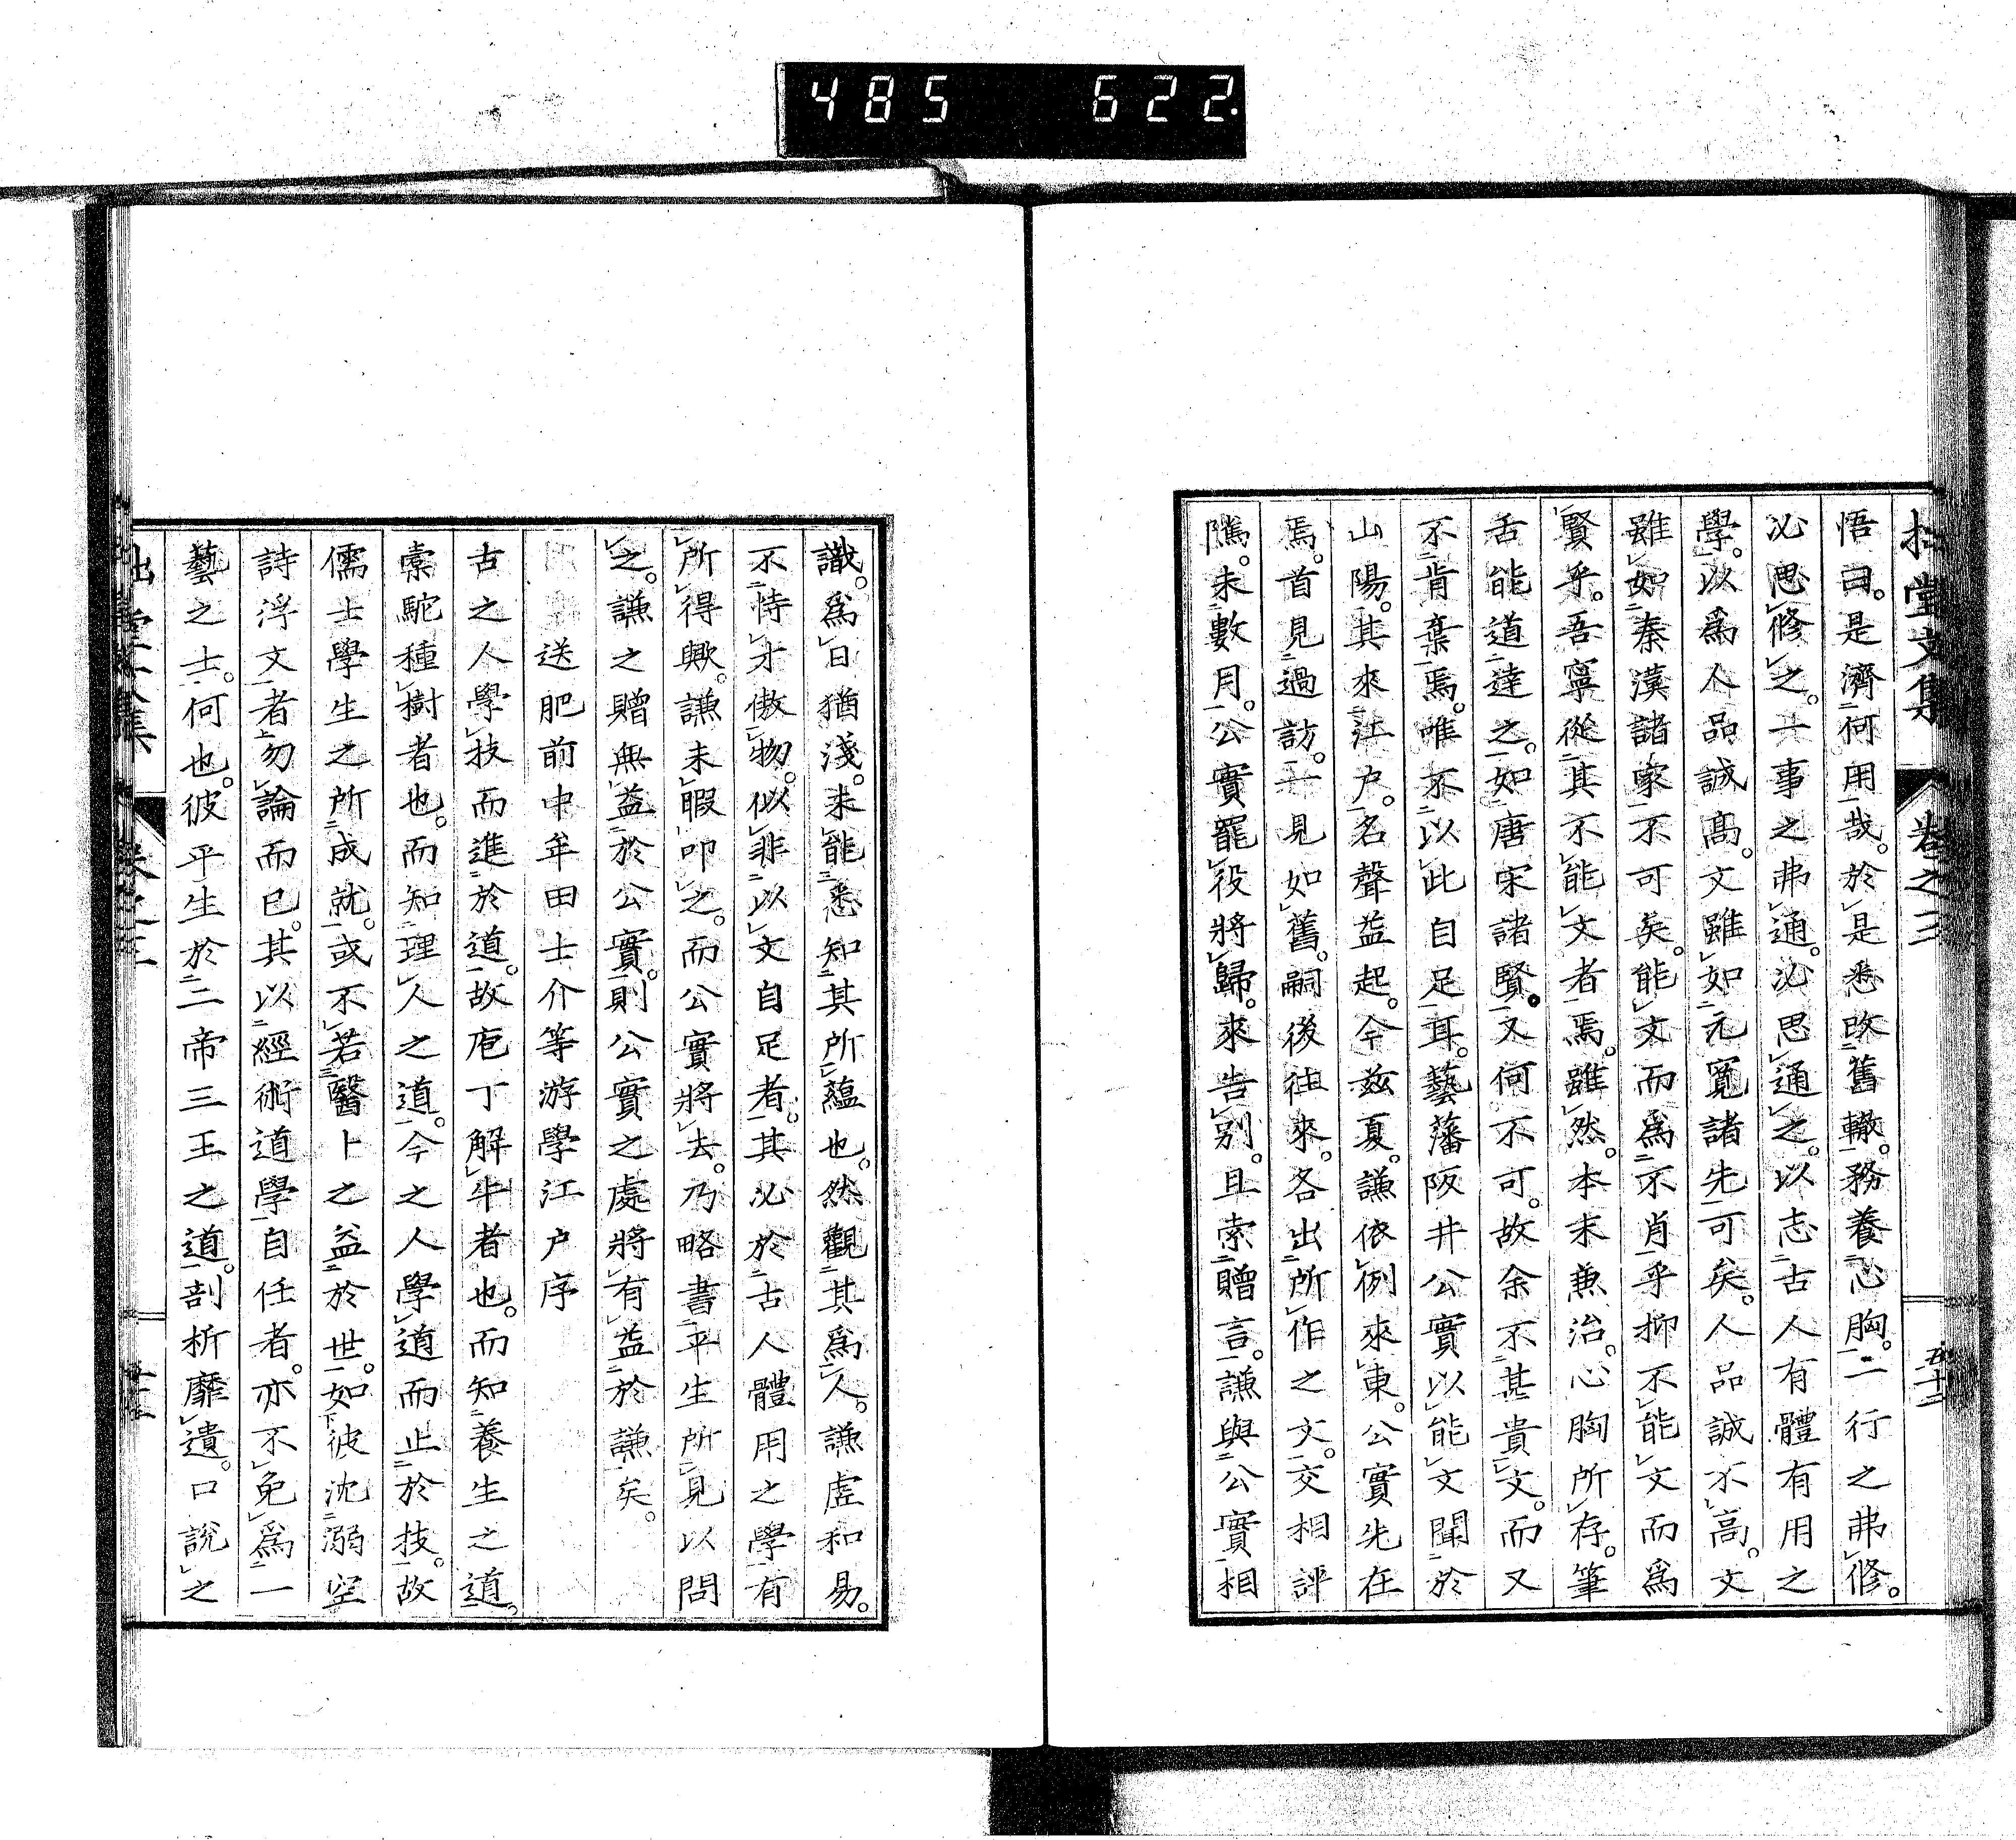 485 622.
拙堂文集 卷之三
悟曰。是濟何用哉。於是悉改舊轍。務養心胸。一行之弗修。
必思修之。一事之弗通。必思通之。以志古人有體有用之
學。以爲人品誠高。文雖如元寬諸先可矣。人品誠不高。文
雖如秦漢諸家不可矣。能文而爲不肖乎抑不能文而爲
賢乎。吾寧從其不能文者焉。雖然。本末兼治。心胸所存。筆
舌能道達之。如唐宋諸賢。又何不可。故余不甚貴文。而又
不肯棄焉。唯不以此自足耳。藝藩阪井公實以能文聞於
山陽。其來江戶。名聲益起。今茲夏。謙依例來東。公實先在
焉。首見過訪。一見如舊。嗣後往來。各出所作之文。交相評
隲。未數月。公實罷役將歸。來告別。且索贈言。謙與公實相
識。爲日猶淺。未能悉知其所蘊也。然觀其爲人。謙虛和易。
不恃才傲物。似非以文自足者。其必於古人體用之學有
所得歟。謙未暇叩之。而公實將去。乃略書平生所見以問
之。謙之贈無益於公實。則公實之處將有益於謙矣。
送肥前中牟田士介等游學江戶序
古之人學技而進於道。故庖丁解牛者也。而知養生之道。
橐駝種樹者也。而知理人之道。今之人學道而止於技。故
儒士學生之所成就。或不若醫卜之益於世。如彼沈溺空
詩浮文者勿論而已。其以經術道學自任者。亦不免爲一
藝之士。何也。彼平生於二帝三王之道。剖析靡遺。口說之
拙堂文集 卷之三